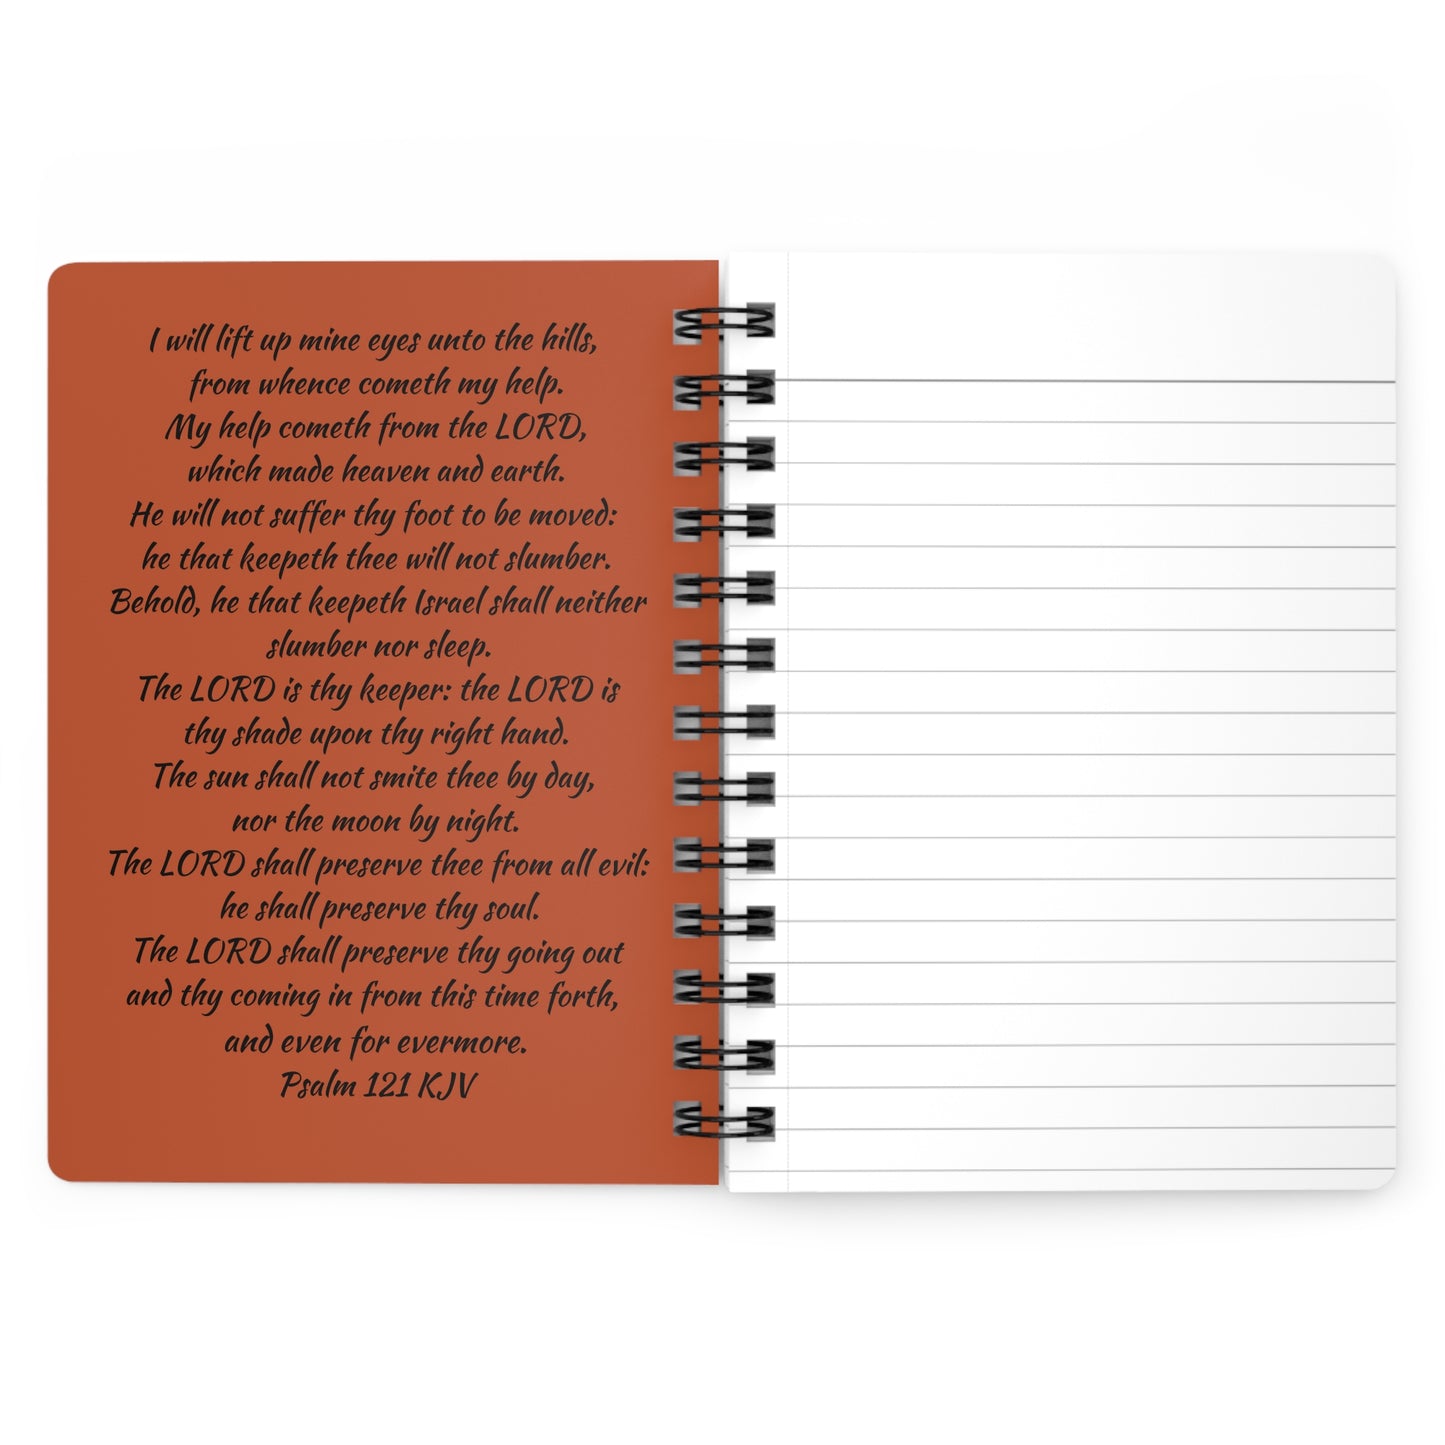 I will lift up mine eyes unto the hills,
from whence cometh my help.
My help cometh from the LORD,
which made heaven and earth.
He will not suffer thy foot to be moved:
he that keepeth thee will not slumber.
Behold, he that keepeth Israel shall neither
slumber nor sleep.
The LORD is thy keeper: the LORD is
thy shade upon thy right hand.
The sun shall not smite thee by day,
nor the moon by night.
The LORD shall preserve thee from all evil:
he shall preserve thy soul.
The LORD shall preserve thy going out
and thy coming in from this time forth,
and even for evermore.
Psalm 121 KJV